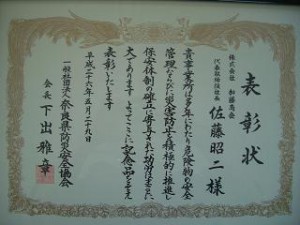 表彰状
株式会社 松藤商会
代表取締役社長
佐藤昭二様
貴事業所は多年にわたり危険物の安全
管理ならびに災害防止を積極的に推進し
保安体制の確立に寄与された功労はまことに
大であります よってここに記念品を呈え
表彰いたします
平成二十六年五月二十九日
一般社団法人奈良県防災安全協会
会長 下出雅章